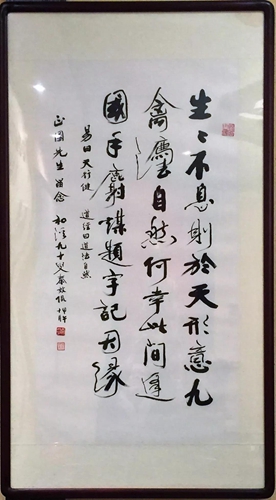 生々不息則於天形意九
禽灋自然何幸此間逢
國手廝謀題字記因緣
易曰天行健 道經曰道法自然
正國先生留念